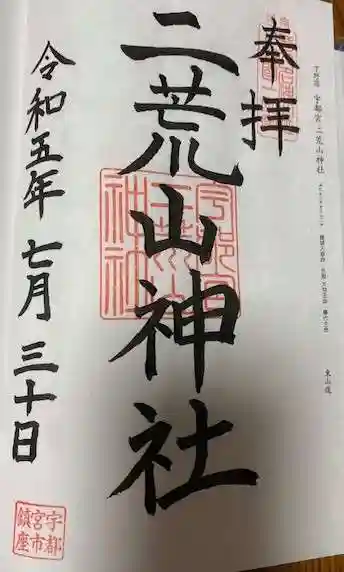 下野國 宇都宮二荒山神社
東山道
奉拝
二荒山神社
宇都宮
二荒山
神社
令和五年 七月 三十日
宇都
宮市
鎮座